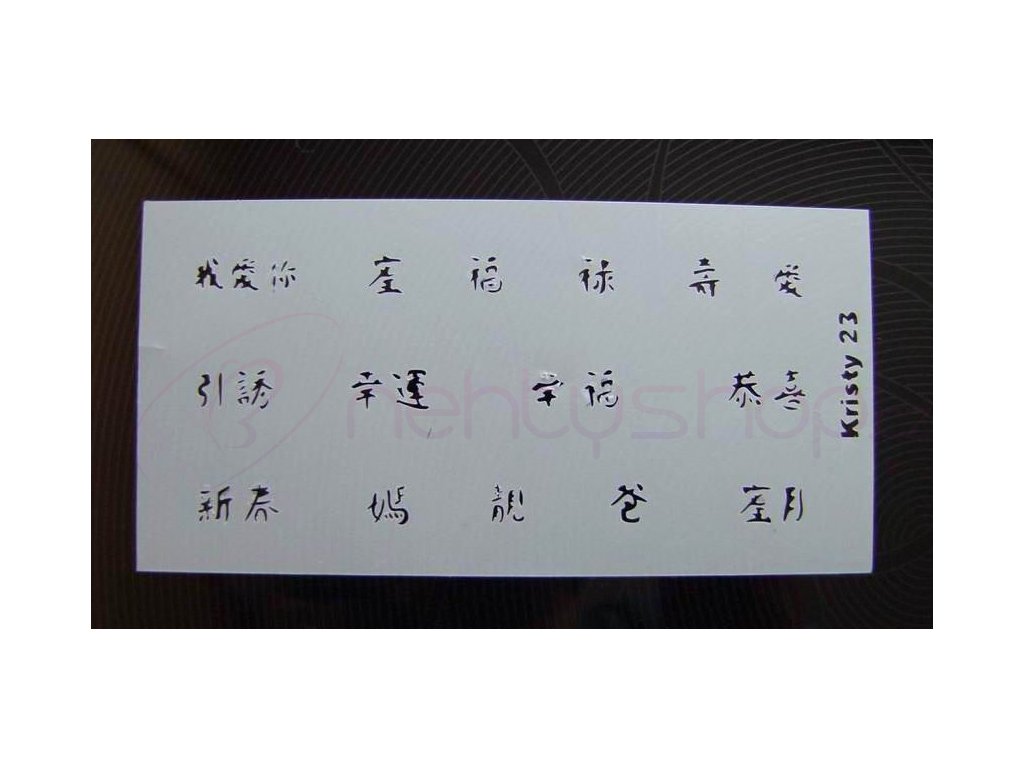 我愛你 座 福 祿 壽 愛
引誘 幸運 幸福 恭喜
新春 媽 靚 爸 座月
Kristy 23
nehtyshop